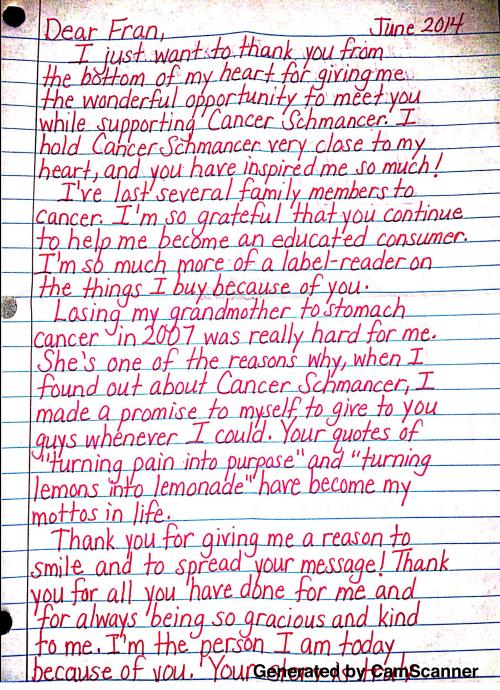 Dear Fran, June 2014
I just want to thank you from
the bottom of my heart for giving me
the wonderful opportunity to meet you
while supporting Cancer Schmancer. I
hold Cancer Schmancer very close to my
heart, and you have inspired me so much!
I've lost several family members to
cancer. I'm so grateful that you continue
to help me become an educated consumer.
I'm so much more of a label-reader on
the things I buy because of you.
Losing my grandmother to stomach
cancer in 2007 was really hard for me.
She's one of the reasons why, when I
found out about Cancer Schmancer, I
made a promise to myself to give to you
guys whenever I could. Your quotes of
"turning pain into purpose" and "turning
lemons into lemonade" have become my
mottos in life.
Thank you for giving me a reason to
smile and to spread your message! Thank
you for all you have done for me and
for always being so gracious and kind
to me. I'm the person I am today
because of you. Your
Generated by CamScanner